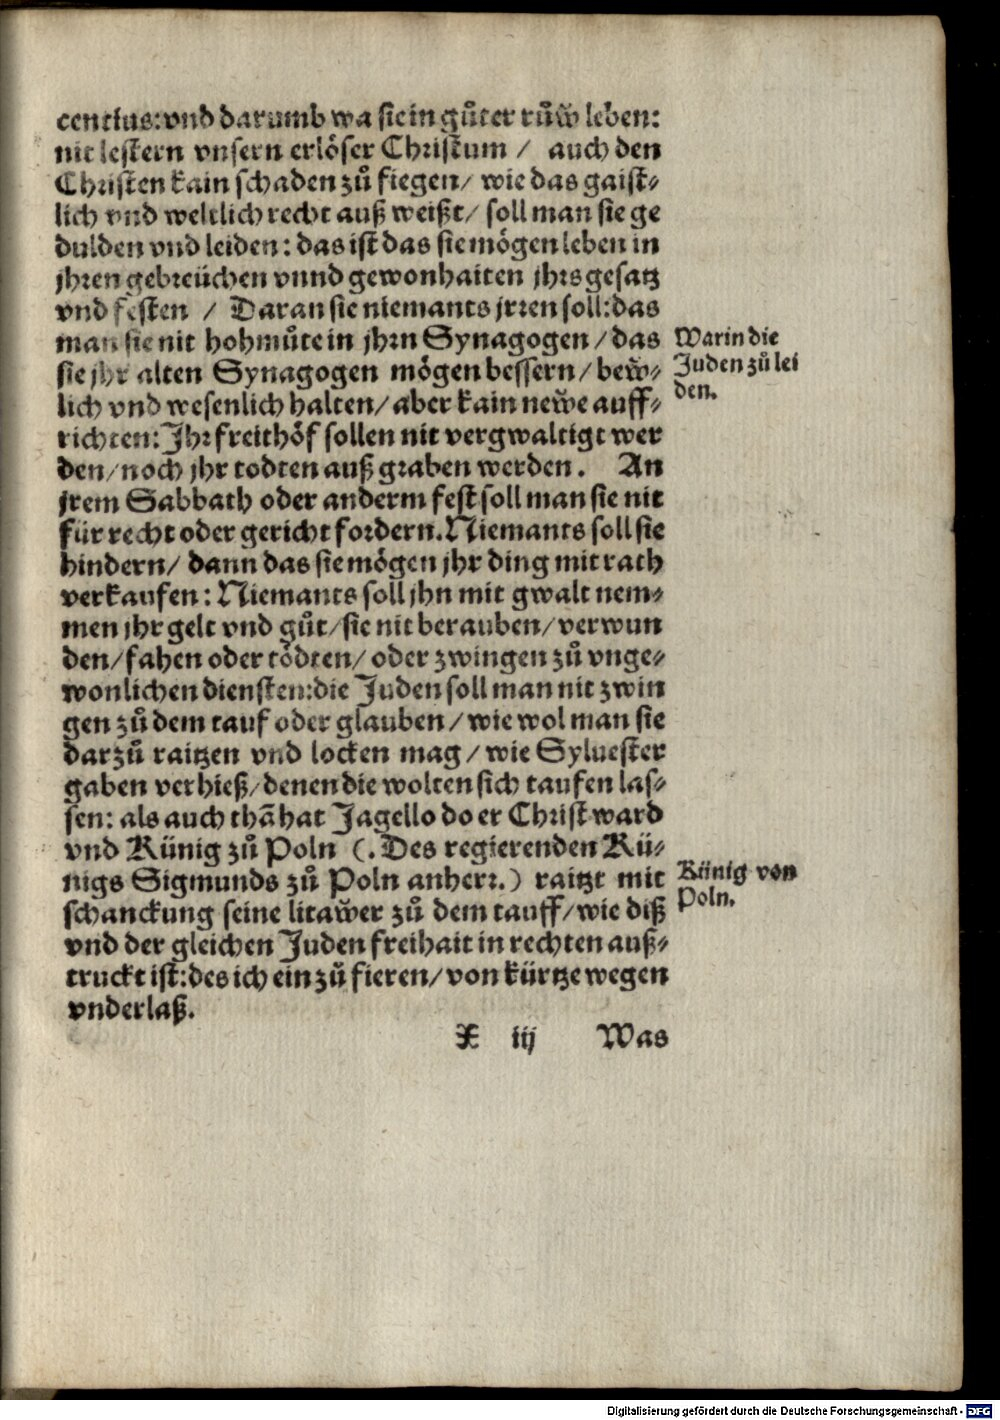 centius: vnd darumb wa sie in gůter růw̆ leben:
nit lestern vnsern erlöser Christum / auch den
Christen kain schaden zů fiegen / wie das gaist⸗
lich vnd weltlich recht auß weißt / soll man sie ge
dulden vnd leiden: das ist das sie mögen leben in
jhren gebreüchen vnnd gewonhaiten jhrs gesatz
vnd festen / Daran sie niemants jrren soll: das
man sie nit hohmůte in jhrn Synagogen / das
sie jhr alten Synagogen mögen bessern / bew̆⸗
lich vnd wesenlich halten / aber kain new̆e auff⸗
richten: Jhr freithöf sollen nit vergwaltigt wer
den / noch jhr todten auß graben werden. An
jrem Sabbath oder anderm fest soll man sie nit
für recht oder gericht fordern. Niemants soll sie
hindern / dann das sie mögen jhr ding mit rath
verkaufen: Niemants soll jhn mit gwalt nem⸗
men jhr gelt vnd gůt / sie nit berauben / verwun
den / fahen oder tödten / oder zwingen zů vnge⸗
wonlichen diensten: die Juden soll man nit zwin
gen zů dem tauf oder glauben / wie wol man sie
darzů raitzen vnd locken mag / wie Syluester
gaben verhieß / denen die wolten sich taufen las⸗
sen: als auch thā hat Jagello do er Christ ward
vnd Künig zů Poln (. Des regierenden Kü⸗
nigs Sigmunds zů Poln anherr.) raitzt mit
schanckung seine litaw̆er zů dem tauff / wie diß
vnd der gleichen Juden freihait in rechten auß⸗
truckt ist: des ich ein zů fieren / von kürtze wegen
vnderlaß.
X iij Was
Warin die
Juden zů lei
den.
Künig von
Poln.
Digitalisierung gefördert durch die Deutsche Forschungsgemeinschaft - DFG